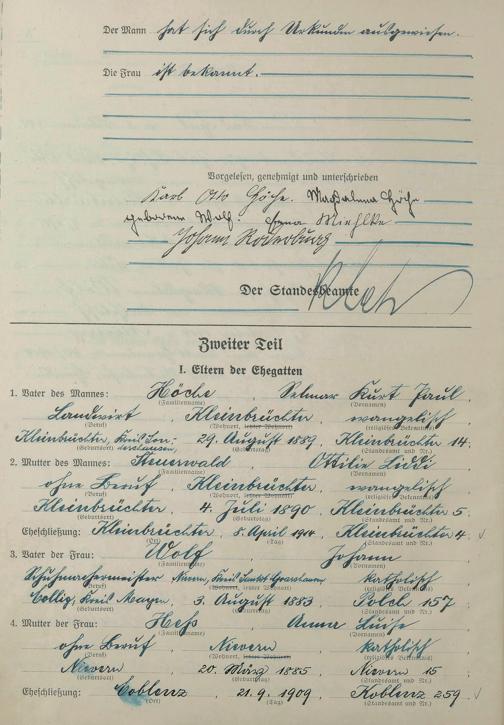 Der Mann hat sich durch Urkunden ausgewiesen.
Die Frau ist bekannt.
Vorgelesen, genehmigt und unterschrieben
Karl Otto Höche. Magdalena Höche
geborene Wolf. Miehlke
Johann
Der Standesbeamte
Zweiter Teil
I. Eltern der Ehegatten
1. Vater des Mannes: Höche, Selmar Kurt Paul,
(Familienname) (Vornamen)
Landwirt, Kleinbrüchter, evangelisch
(Beruf) (Wohnort, letzter Wohnort) (religiöses Bekenntnis)
Kleinbrüchter, Kreis Son-
dershausen, 29. August 1889, Kleinbrüchter 14.
(Geburtsort) (Geburtstag) (Standesamt und Nr.)
2. Mutter des Mannes: Steuerwald, Ottilie Liddi,
(Familienname) (Vornamen)
ohne Beruf, Kleinbrüchter, evangelisch
(Beruf) (Wohnort, letzter Wohnort) (religiöses Bekenntnis)
Kleinbrüchter, 4. Juli 1890, Kleinbrüchter 5.
(Geburtsort) (Geburtstag) (Standesamt und Nr.)
Eheschließung: Kleinbrüchter, 8. April 1914, Kleinbrüchter 4
(Ort) (Tag) (Standesamt und Nr.)
3. Vater der Frau: Wolf, Johann,
(Familienname) (Vornamen)
Schuhmachermeister, Kreis Sankt Goarshausen, katholisch
(Beruf) (Wohnort, letzter Wohnort) (religiöses Bekenntnis)
Collig, Kreis Mayen, 3. August 1883, Polch 157
(Geburtsort) (Geburtstag) (Standesamt und Nr.)
4. Mutter der Frau: Heß, Anna Luise,
(Familienname) (Vornamen)
ohne Beruf, Nievern, katholisch
(Beruf) (Wohnort, letzter Wohnort) (religiöses Bekenntnis)
Nievern, 20. März 1885, Nievern 15
(Geburtsort) (Geburtstag) (Standesamt und Nr.)
Eheschließung: Coblenz, 21. 9. 1909, Koblenz 259.
(Ort) (Tag) (Standesamt und Nr.)